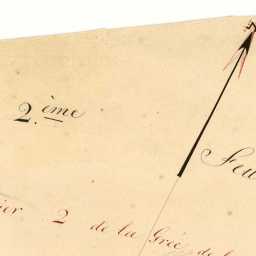 2.ème
Feu
ier 2 de la Grée de l